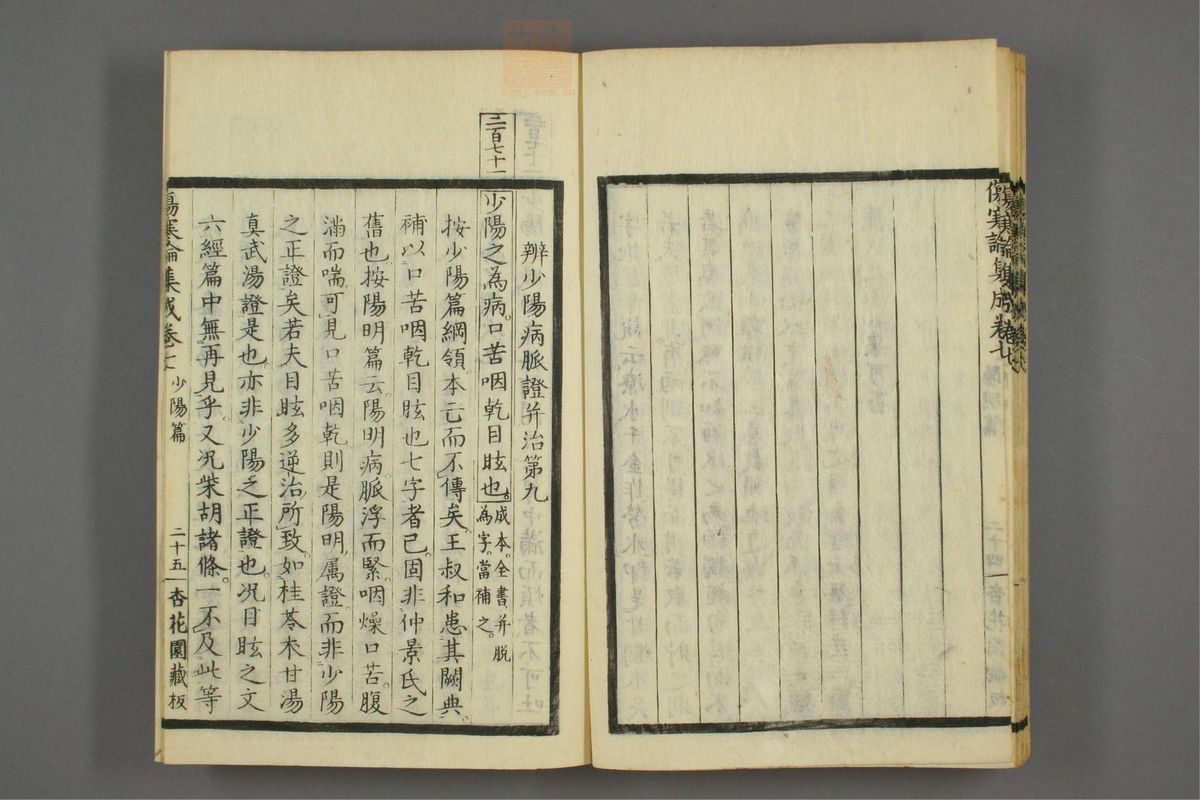 傷寒論集成卷七
辨少陽病脈證并治第九
二百七十一 少陽之為病。口苦咽乾目眩也。成本。全書。并脫
為字。當補之。
按少陽篇綱領。本亡而不傳矣。王叔和患其闕典。
補以口苦咽乾目眩也七字者已。固非仲景氏之
舊也。按陽明篇云。陽明病。脈浮而緊。咽燥口苦。腹
滿而喘。可見口苦咽乾。則是陽明屬證。而非少陽
之正證矣。若夫目眩。多逆治所致。如桂苓朮甘湯
真武湯證是也。亦非少陽之正證也。况目眩之文
六經篇中無再見乎。又况柴胡諸條。一不及此等
傷寒論集成卷七 少陽篇 二十五 杏花園藏板